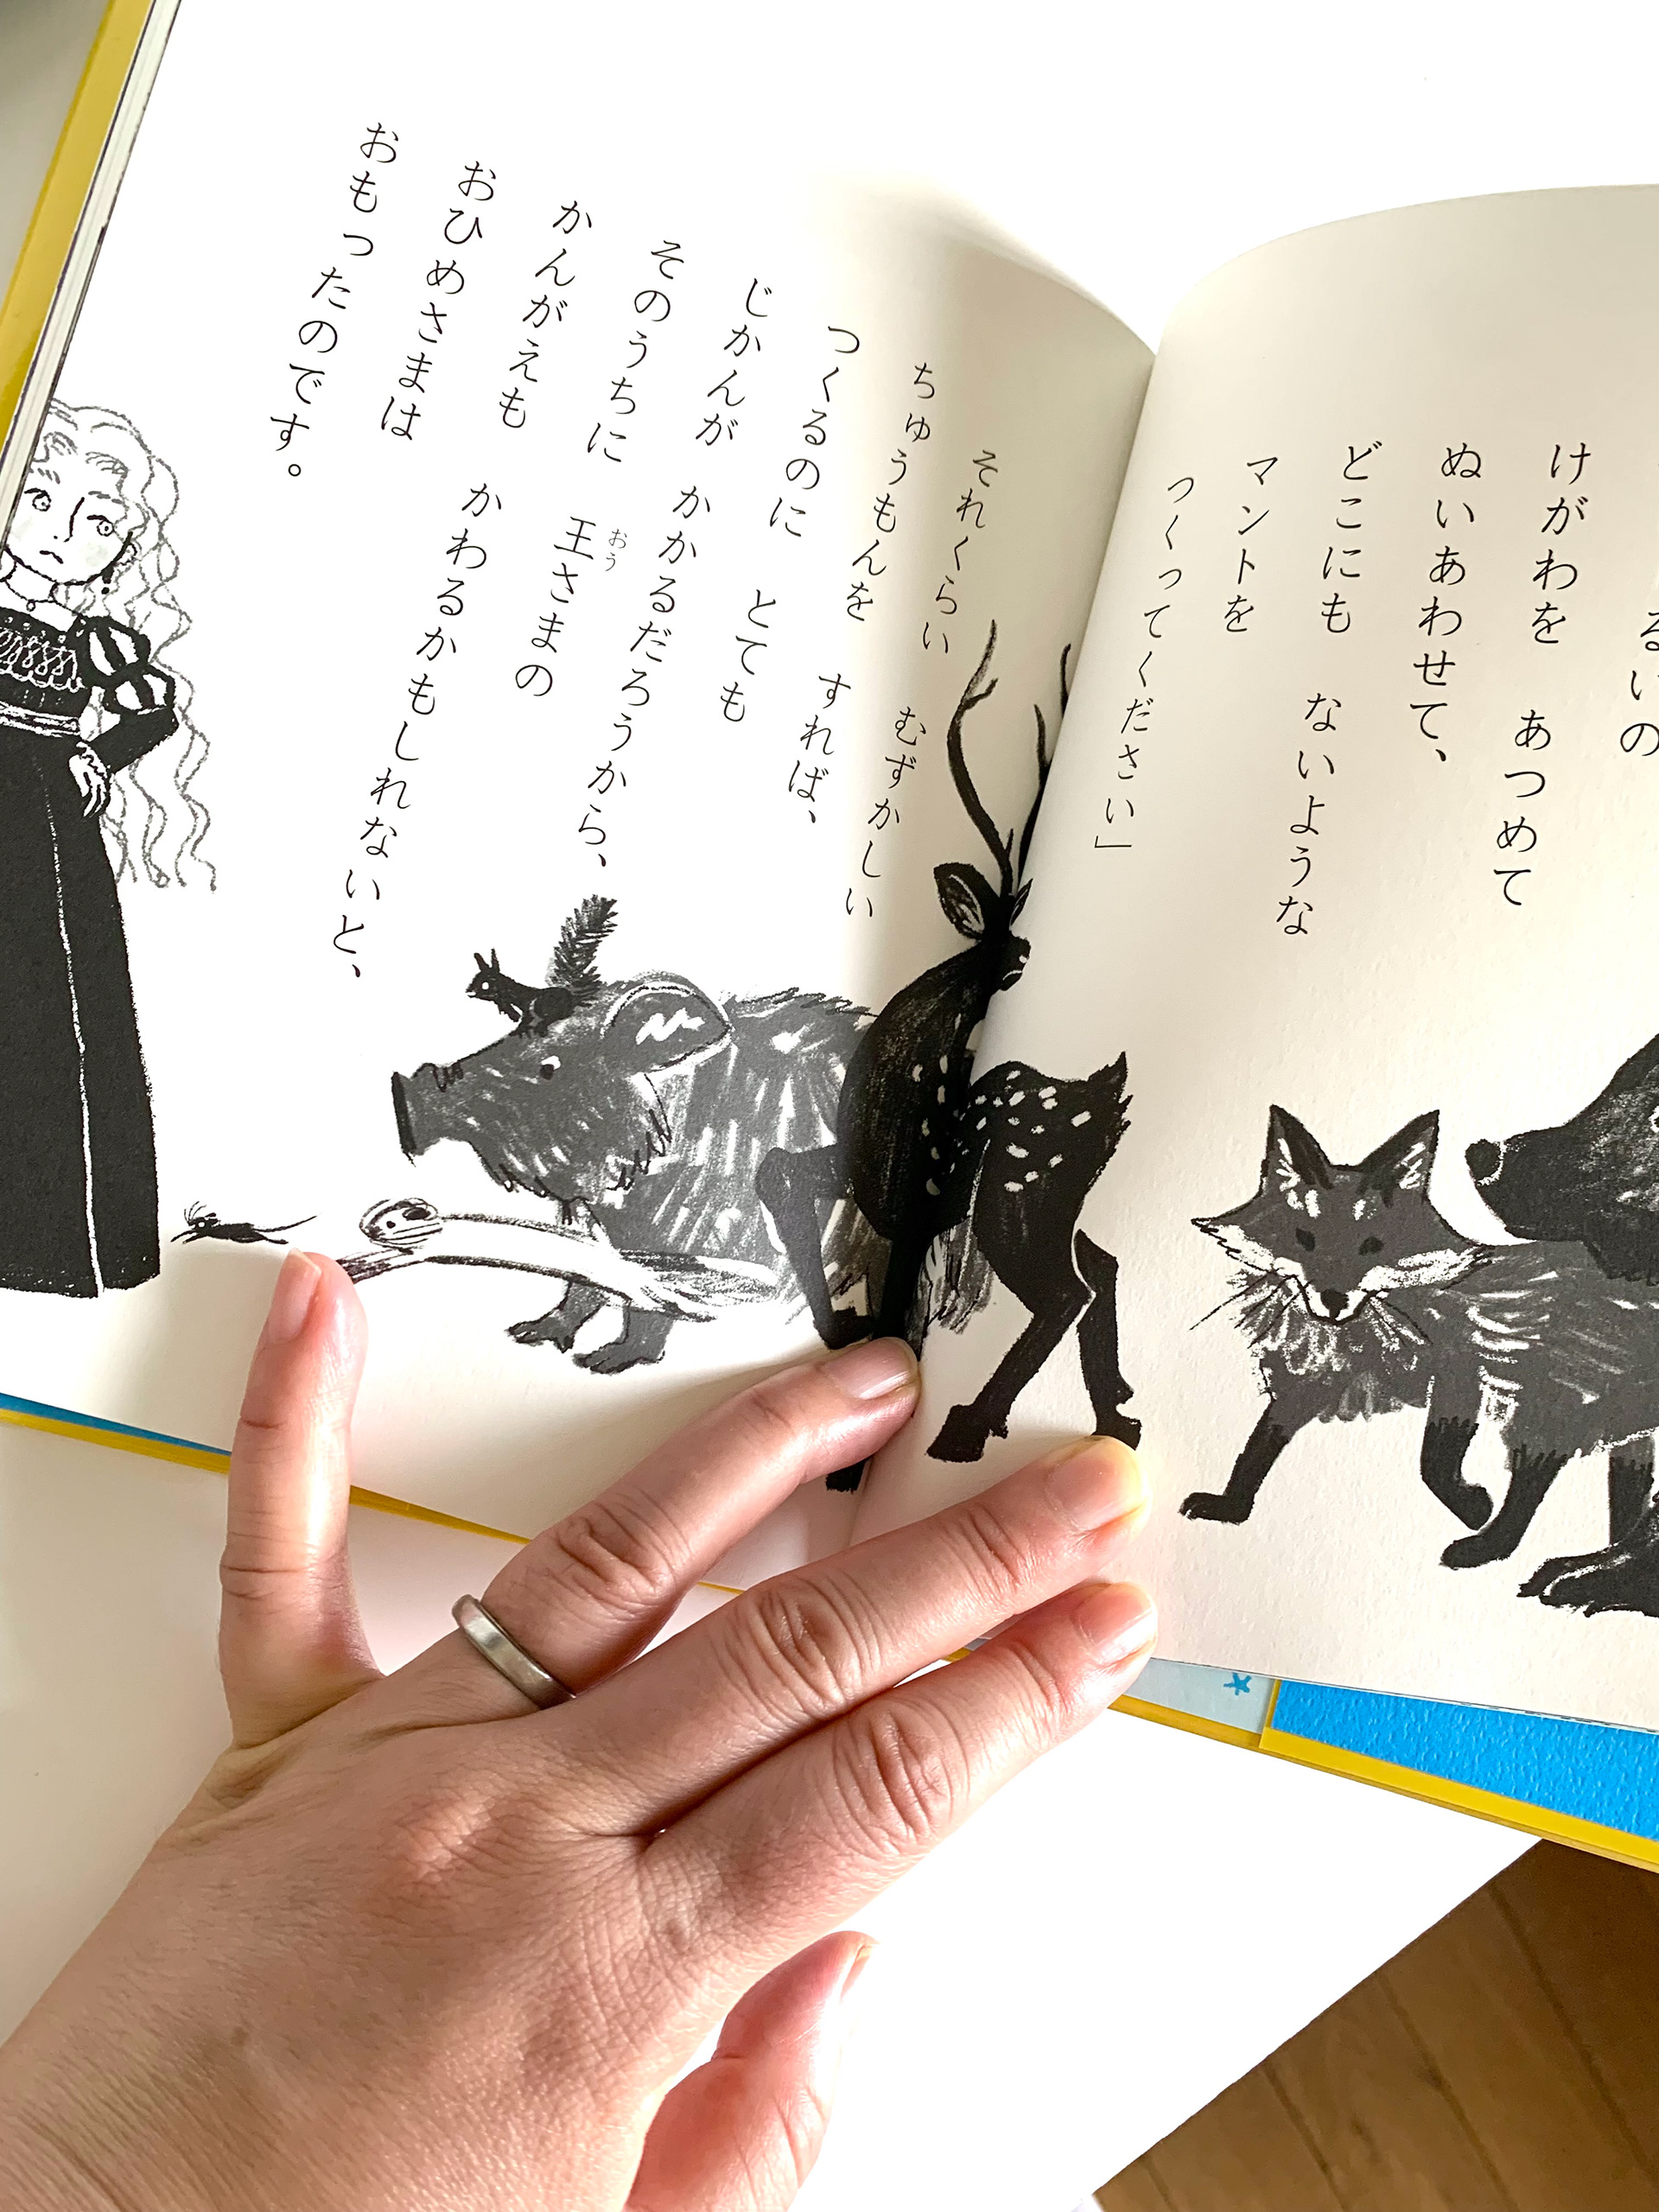 るいの
けがわを あつめて
ぬいあわせて、
どこにも ないような
マントを
つくってください」
それくらい むずかしい
ちゅうもんを すれば、
つくるのに とても
じかんが かかるだろうから、
そのうちに 王さまの
おう
かんがえも かわるかもしれないと、
おひめさまは
おもったのです。